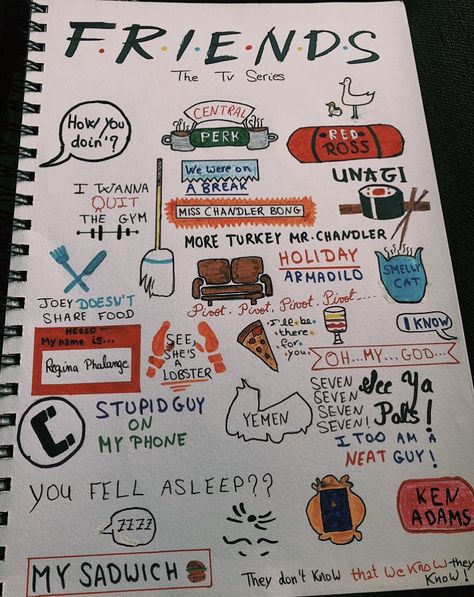 F.R.I.E.N.D.S
The Tv Series
How you
doin'?
CENTRAL
PERK
RED
ROSS
I WANNA
QUIT
THE GYM
We were on
A BREAK
UNAGI
MISS CHANDLER BONG
MORE TURKEY MR. CHANDLER
HOLIDAY
ARMADILO
SMELLY
CAT
JOEY DOESN'T
SHARE FOOD
Pivot. Pivot. Pivot. Pivot....
HELLO
My name is...
Regina Phalange
SEE,
SHE'S
A LOBSTER
I'll be
there
for
you
I KNOW
OH...MY...GOD...
C.
STUPID GUY
ON
MY PHONE
YEMEN
SEVEN
SEVEN
SEVEN
SEVEN!
See Ya
Pals!
I TOO AM A
NEAT GUY!
YOU FELL ASLEEP??
ZZZZ
KEN
ADAMS
MY SADWICH
They don't know that we know they
know!